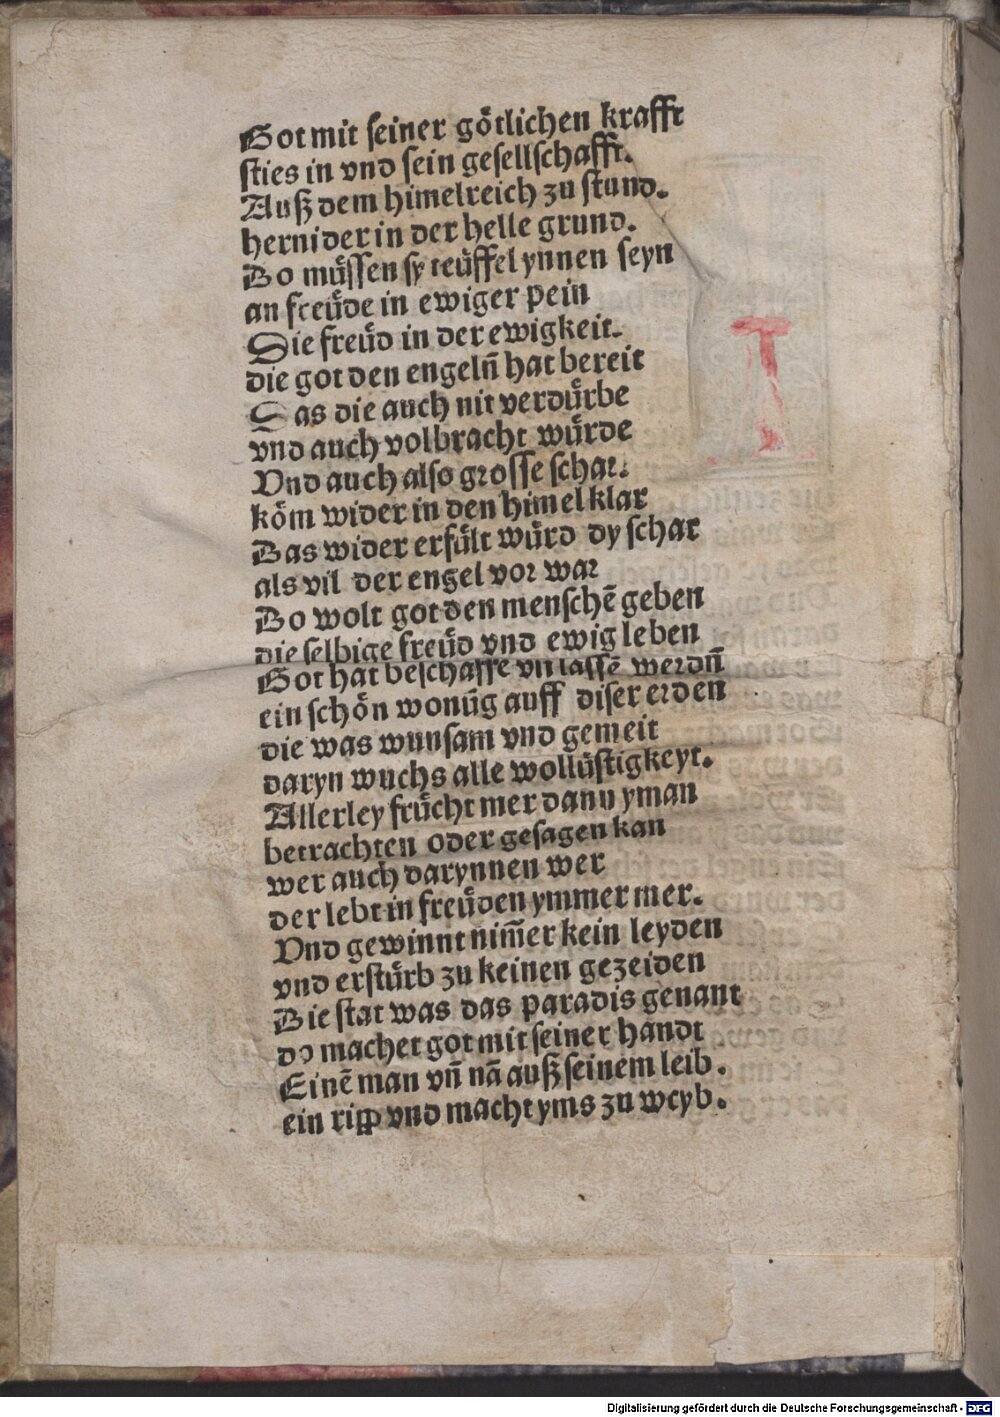 Got mit seiner götlichen krafft
sties in vnd sein gesellschafft.
Auß dem himelreich zu stund.
hernider in der helle grund.
Do müssen sy teüffel ynnen seyn
an freüde in ewiger pein
Die freüd in der ewigkeit.
die got den engeln̄ hat bereit
Das die auch nit verdürbe
vnd auch volbracht würde
Vnd auch also grosse schar.
köm wider in den himel klar
Das wider erfült würd dy schar
als vil der engel vor war
Do wolt got den menschē geben
die selbige freüd vnd ewig leben
Got hat beschaffe vn̄ lassē werdn̄
ein schön wonūg auff diser erden
die was wunsam vnd gemeit
daryn wuchs alle wollüstigkeyt.
Allerley frücht mer dann yman
betrachten oder gesagen kan
wer auch darynnen wer
der lebt in freüden ymmer mer.
Vnd gewinnt nim̄er kein leyden
vnd erstürb zu keinen gezeiden
Die stat was das paradis genant
do machet got mit seiner handt
Einē man vn̄ nā auß seinem leib.
ein ripp vnd macht yms zu weyb.
T
Digitalisierung gefördert durch die Deutsche Forschungsgemeinschaft - DFG